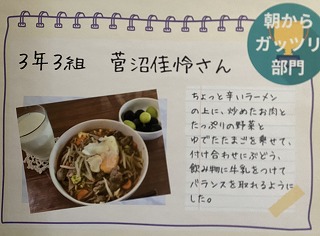 朝から
ガッツリ
部門
3年3組 菅沼佳怜さん
ちょっと辛いラーメン
の上に、炒めたお肉と
たっぷりの野菜と
ゆでたたまごを乗せて、
付け合わせにぶどう、
飲み物に牛乳をつけて
バランスを取れるように
した。